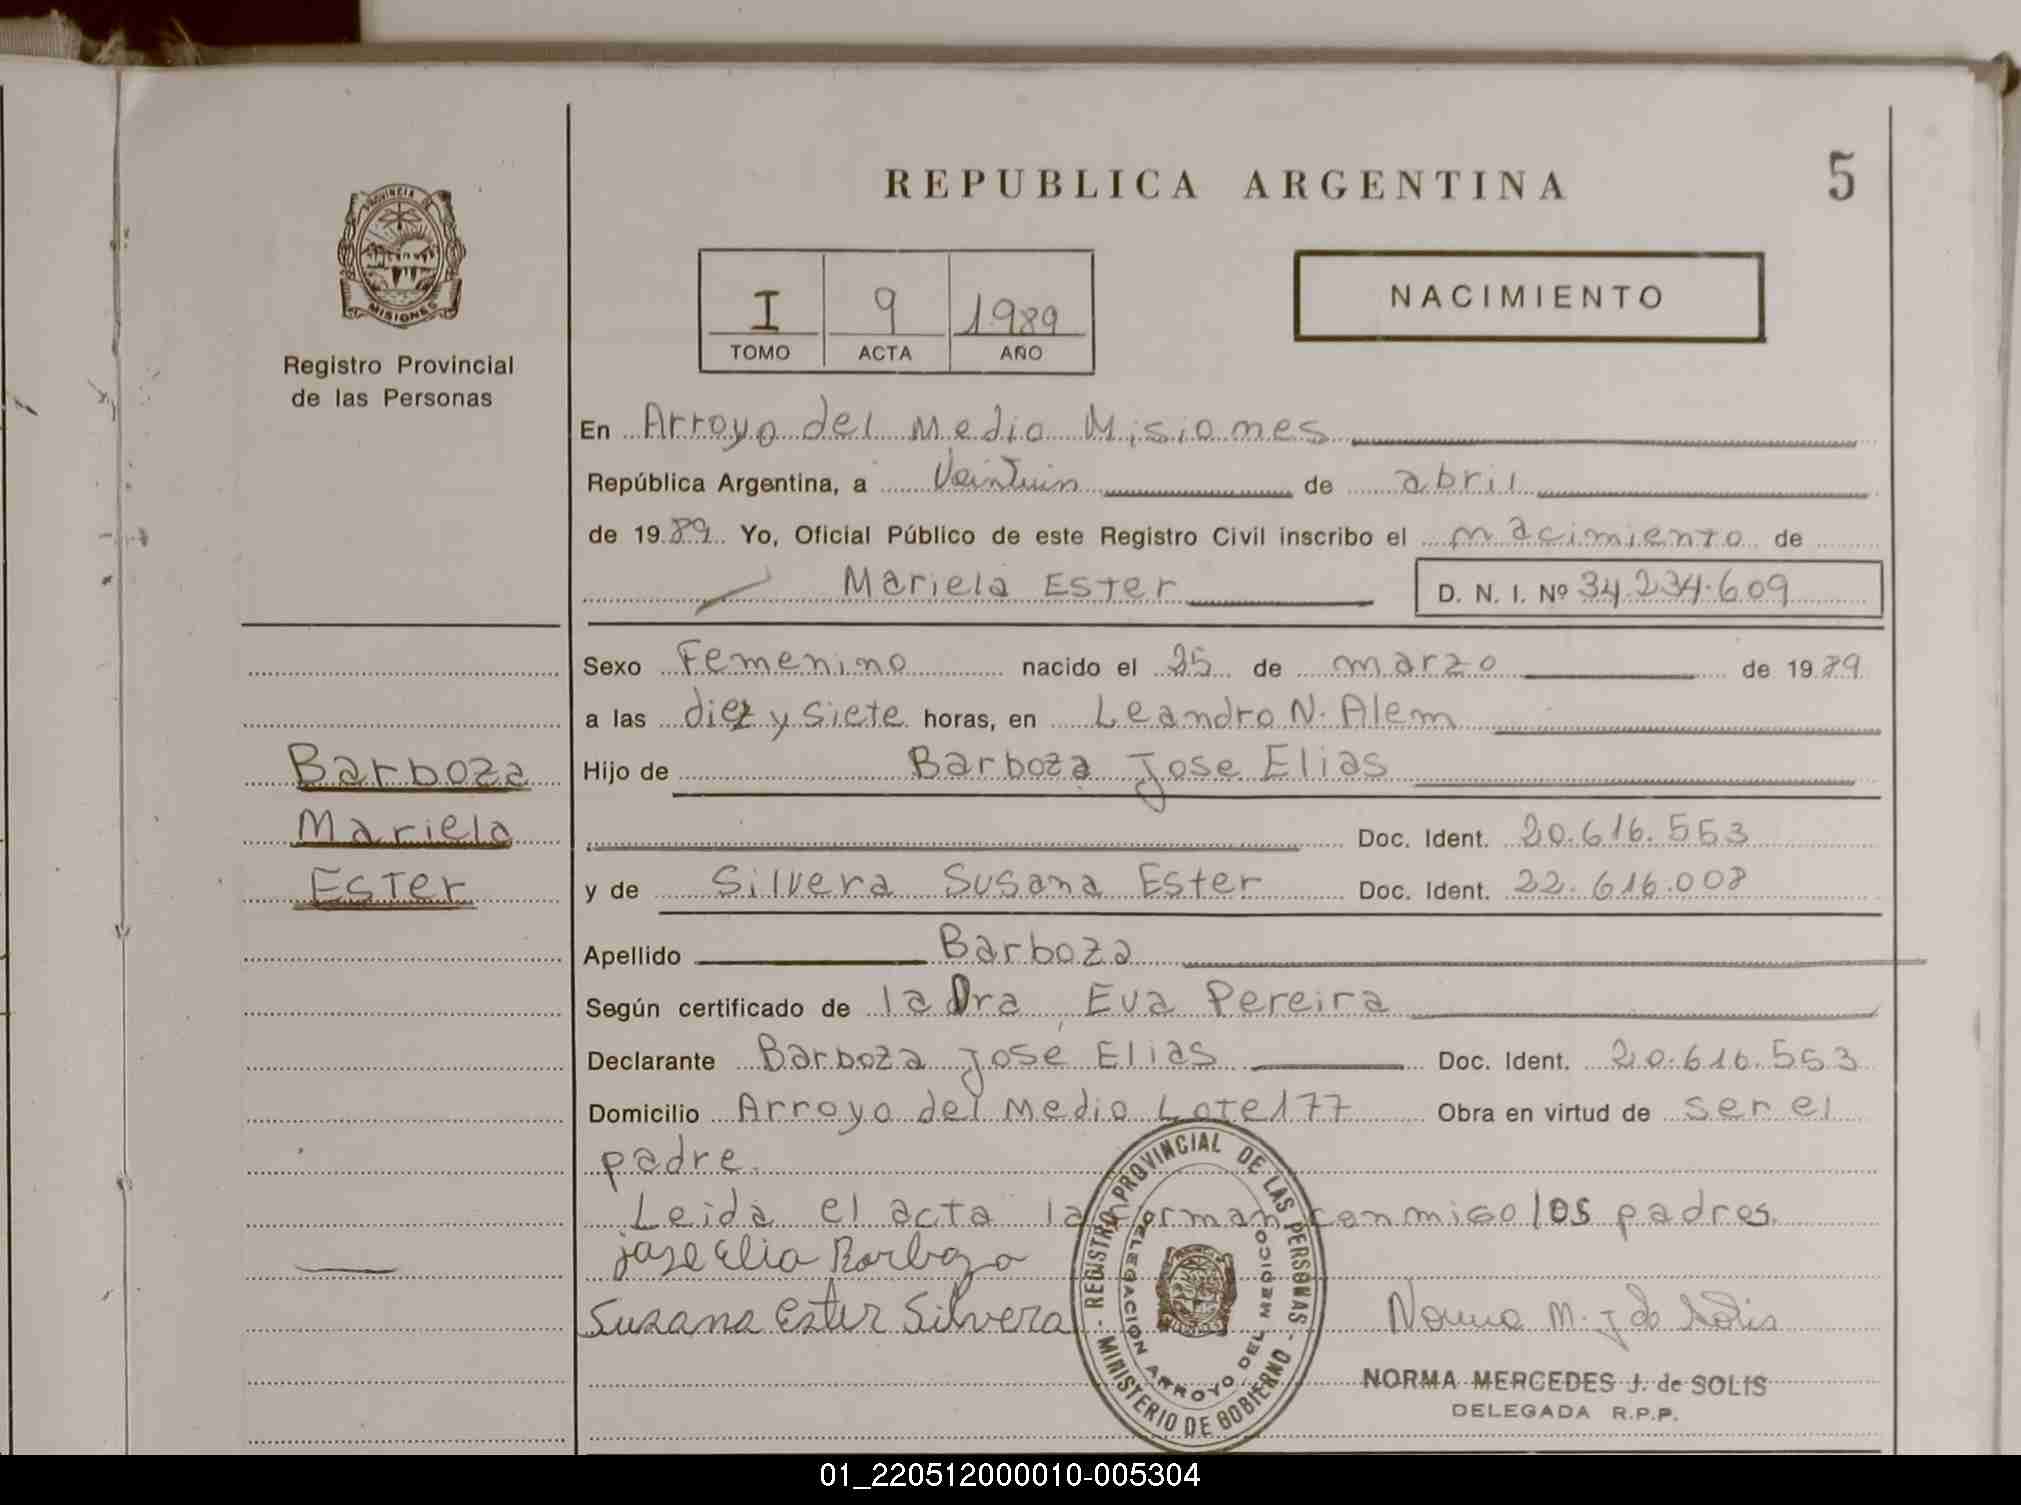 REPUBLICA ARGENTINA
5
PROVINCIA DE
MISIONES
Registro Provincial
de las Personas
I 9 1989
TOMO ACTA AÑO
NACIMIENTO
En Arroyo del Medio Misiones
República Argentina, a Veintiun de abril
de 1989 Yo, Oficial Público de este Registro Civil inscribo el nacimiento de
Mariela Ester D. N. I. Nº 34.234.609
Sexo Femenino nacido el 25 de marzo de 1989
a las diez y siete horas, en Leandro N. Alem
Barboza
Mariela
Ester
Hijo de Barboza Jose Elias
Doc. Ident. 20.616.553
y de Silvera Susana Ester Doc. Ident. 22.616.008
Apellido Barboza
Según certificado de la Dra Eva Pereira
Declarante Barboza Jose Elias Doc. Ident. 20.616.553
Domicilio Arroyo del Medio Lote 177 Obra en virtud de ser el
padre.
Leida el acta la forman conmigo los padres.
jose Elia Barboza
Susana Ester Silvera
Norma M. J de Solis
REGISTRO PROVINCIAL DE LAS PERSONAS - MINISTERIO DE GOBIERNO -
DELEGACION ARROYO DEL MEDIO
NORMA MERCEDES J. de SOLIS
DELEGADA R.P.P.
01_220512000010-005304